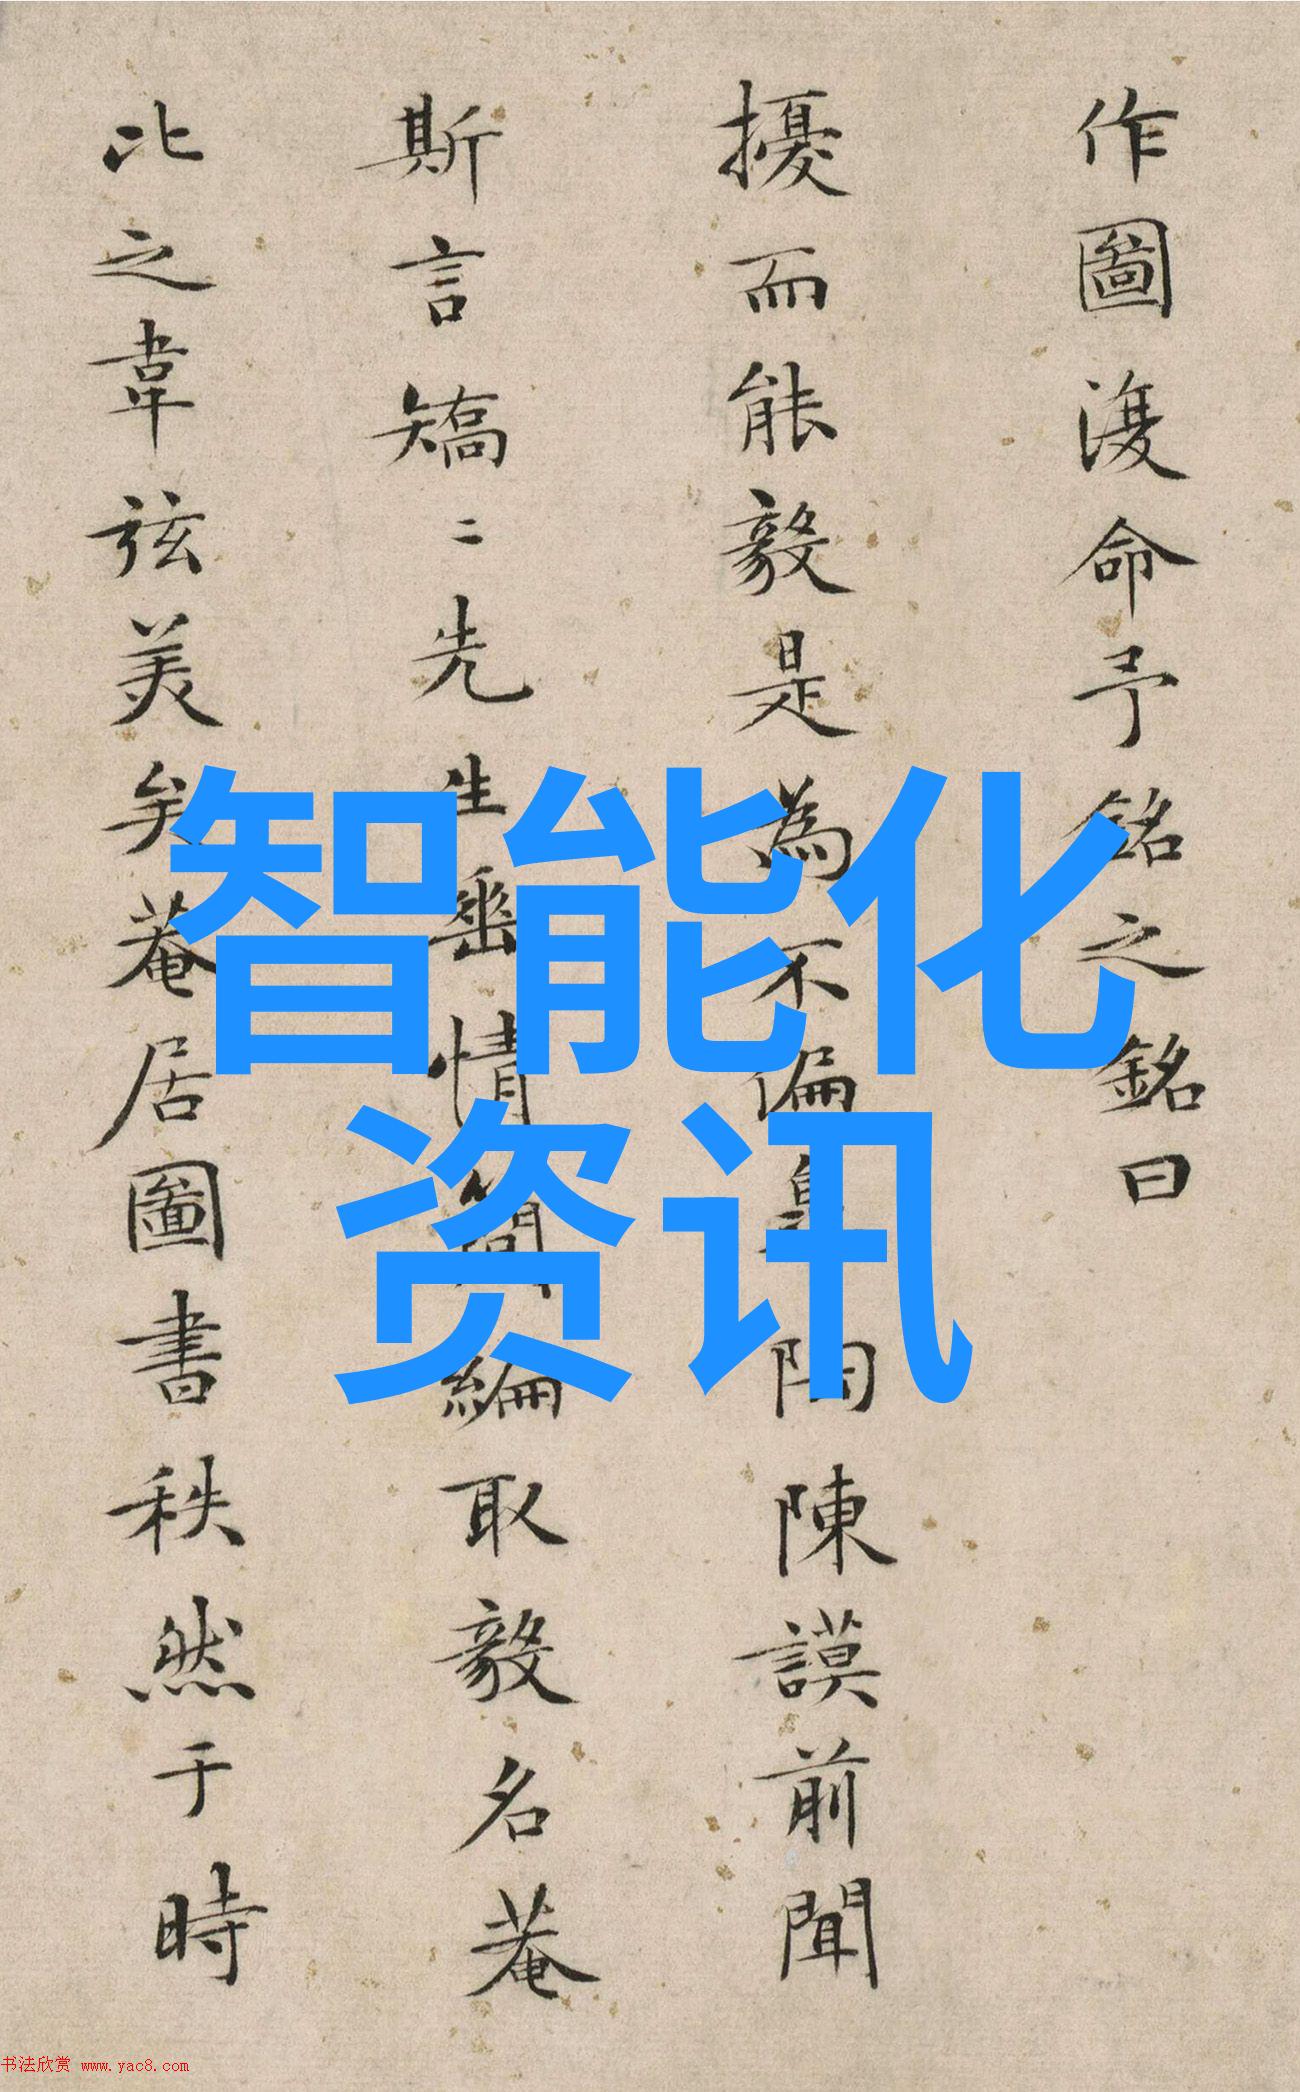 作圖復命予銘之銘曰
擾而能毅是為不偏皋陶陳謨前聞
斯言矯二先生垂情簡編取毅名菴
比之韋弦美矣菴居圖書秩然于時
智能化
资讯
书法欣赏 www.yac8.com